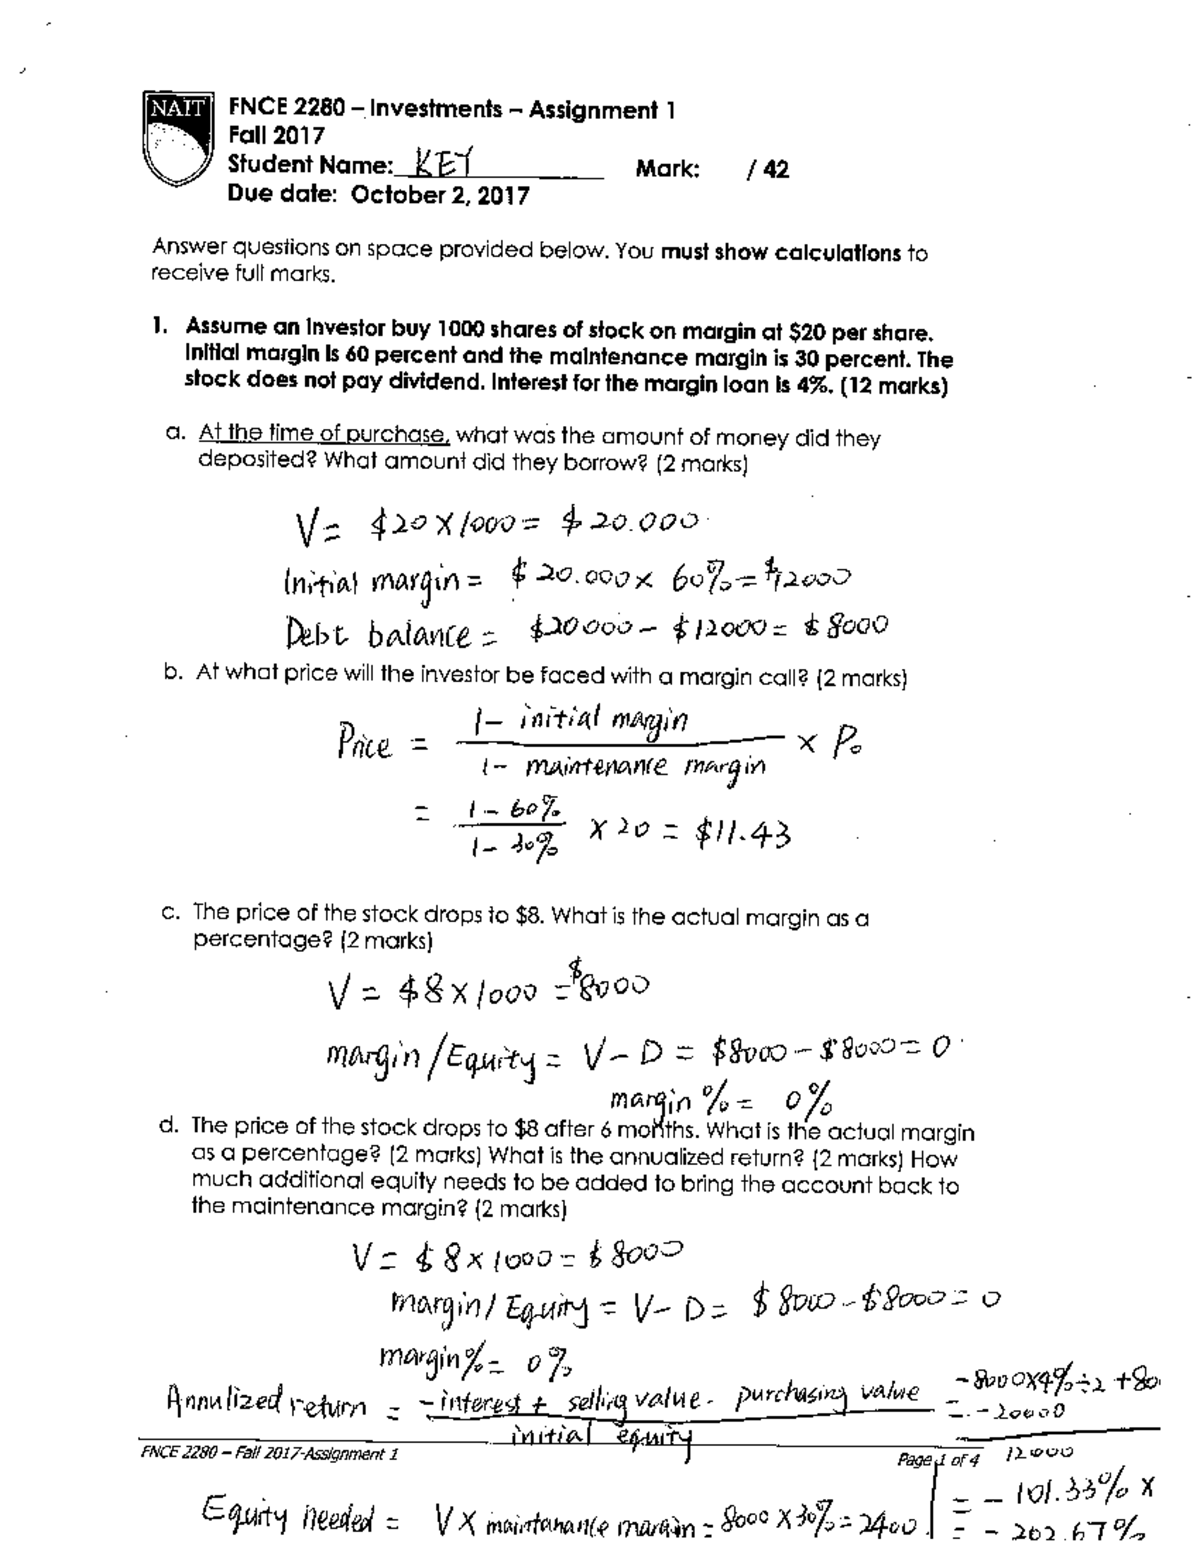 NAIT
FNCE 2280 – Investments – Assignment 1
Fall 2017
Student Name: KEY Mark: / 42
Due date: October 2, 2017
Answer questions on space provided below. You must show calculations to
receive full marks.
1. Assume an Investor buy 1000 shares of stock on margin at $20 per share.
Initial margin is 60 percent and the maintenance margin is 30 percent. The
stock does not pay dividend. Interest for the margin loan is 4%. (12 marks)
a. At the time of purchase, what was the amount of money did they
deposited? What amount did they borrow? (2 marks)
V = $20 X 1000 = $20.000
Initial margin = $20.000 x 60% = $12000
Debt balance = $20000 - $12000 = $8000
b. At what price will the investor be faced with a margin call? (2 marks)
Price = 1 - initial margin
1 - maintenance margin x P₀
= 1 - 60%
1 - 30% x 20 = $11.43
c. The price of the stock drops to $8. What is the actual margin as a
percentage? (2 marks)
V = $8 x 1000 = $8000
margin/Equity = V - D = $8000 - $8000 = 0
margin % = 0%
d. The price of the stock drops to $8 after 6 months. What is the actual margin
as a percentage? (2 marks) What is the annualized return? (2 marks) How
much additional equity needs to be added to bring the account back to
the maintenance margin? (2 marks)
V = $8 x 1000 = $8000
margin/Equity = V - D = $8000 - $8000 = 0
margin% = 0%
Annulized return = - interest + selling value - purchasing value = -8000x4%÷2 +80
- 20000
initial equity
12000
FNCE 2280 – Fall 2017-Assignment 1 Page 1 of 4
= - 101.33% x
Equity needed = V X maintanance margin = 8000 x 30% = 2400. = - 202.67%